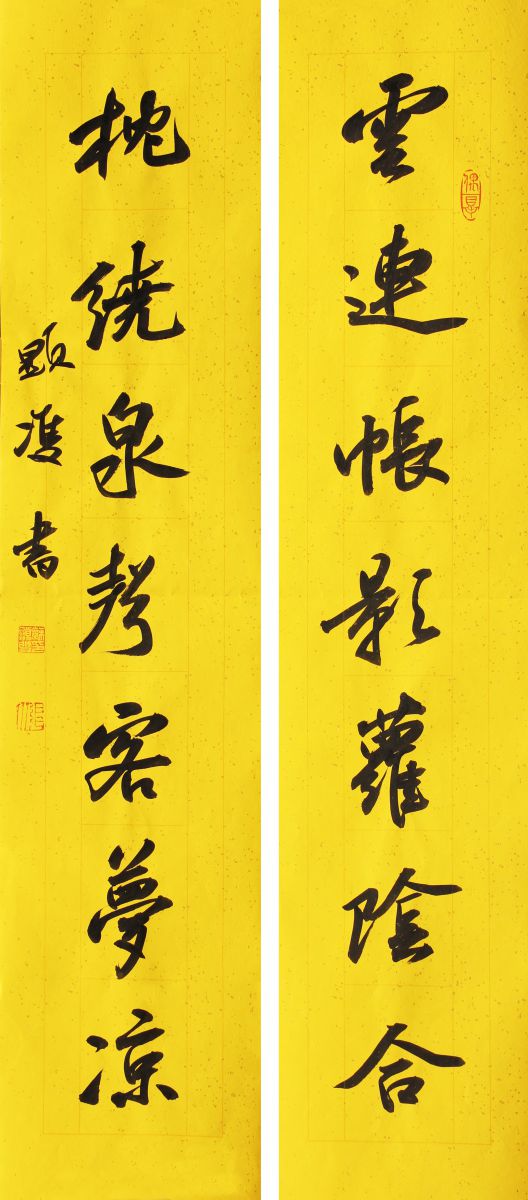 雲連帳影蘿陰合
枕繞泉聲客夢凉
顕書